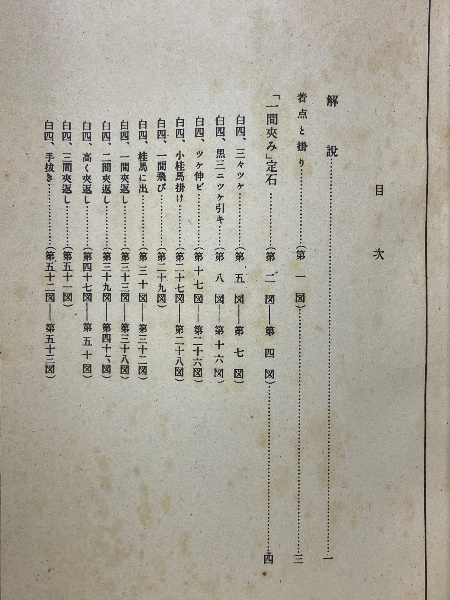 目次
解説……………………一
着点と掛り…………(第一図)……………………三
「一間夾み」定石…………(第二図――第四図)……………………四
白四、三々ツケ…………(第五図――第七図)
白四、黒三ニツケ引キ……(第八図――第十六図)
白四、ツケ伸ビ…………(第十七図――第二十六図)
白四、小桂馬掛け………(第二十七図――第二十八図)
白四、一間飛び…………(第二十九図)
白四、桂馬に出…………(第三十図――第三十二図)
白四、一間夾返し………(第三十三図――第三十八図)
白四、二間夾返し………(第三十九図――第四十六図)
白四、高く夾返し………(第四十七図――第五十図)
白四、三間夾返し………(第五十一図)
白四、手抜き…………(第五十二図――第五十三図)